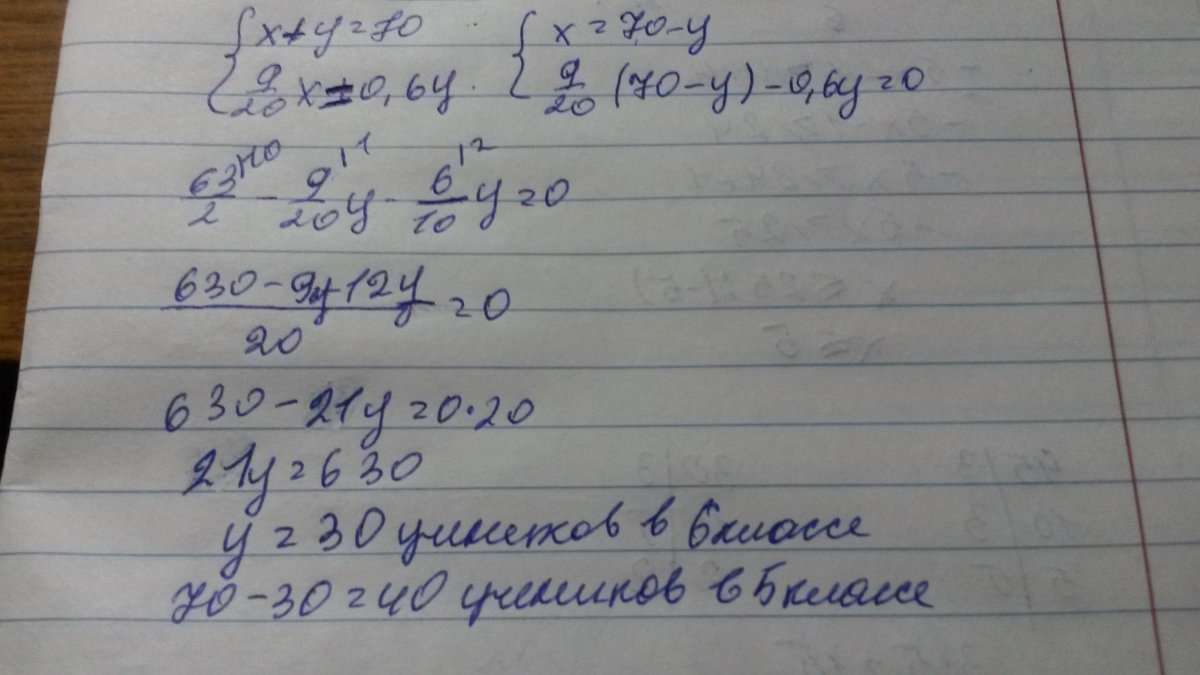 { x+y=70 { x=70-y
{ 9/20 x=0,6y { 9/20 (70-y)-0,6y=0
63/2 |10 - 9/20 |1 y - 6/10 |2 y=0
(630-9y-12y)/20 =0
630-21y=0·20
21y=630
y=30 учеников в 6 классе
70-30=40 учеников в 5 классе